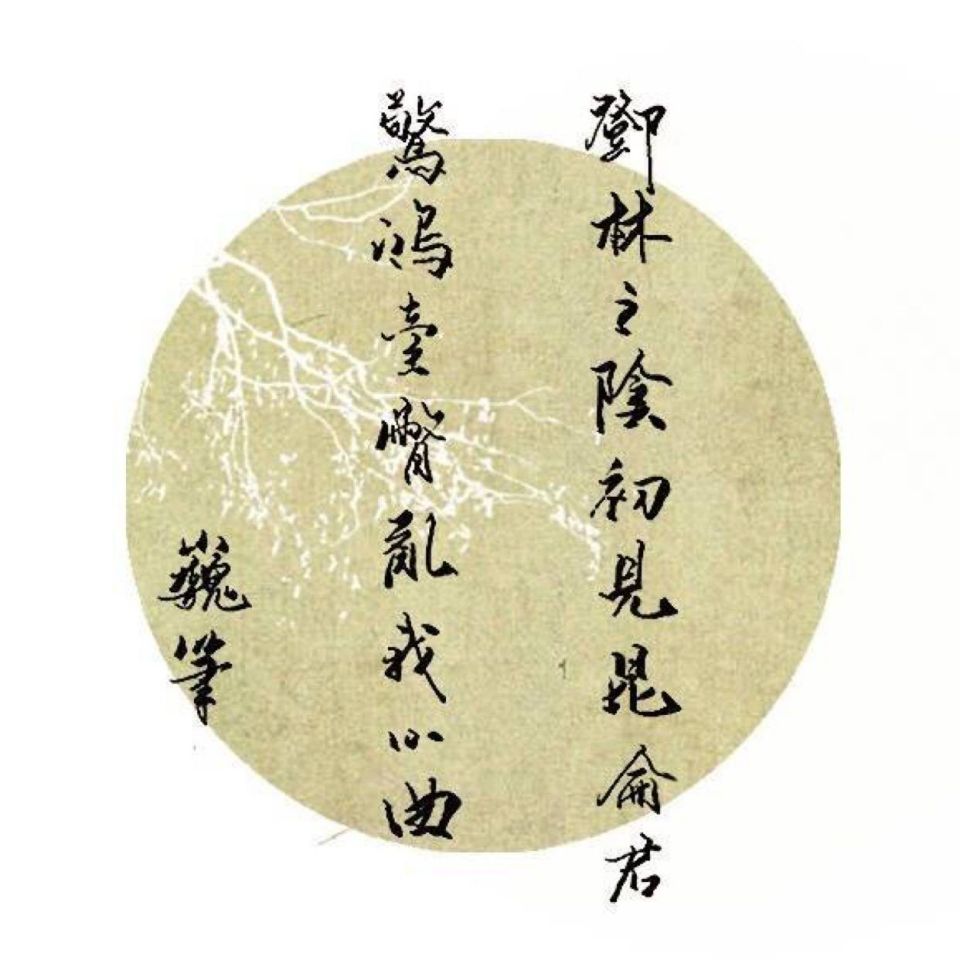 鄧林之陰初見昆侖君
驚鴻壹瞥亂我心曲
巍筆